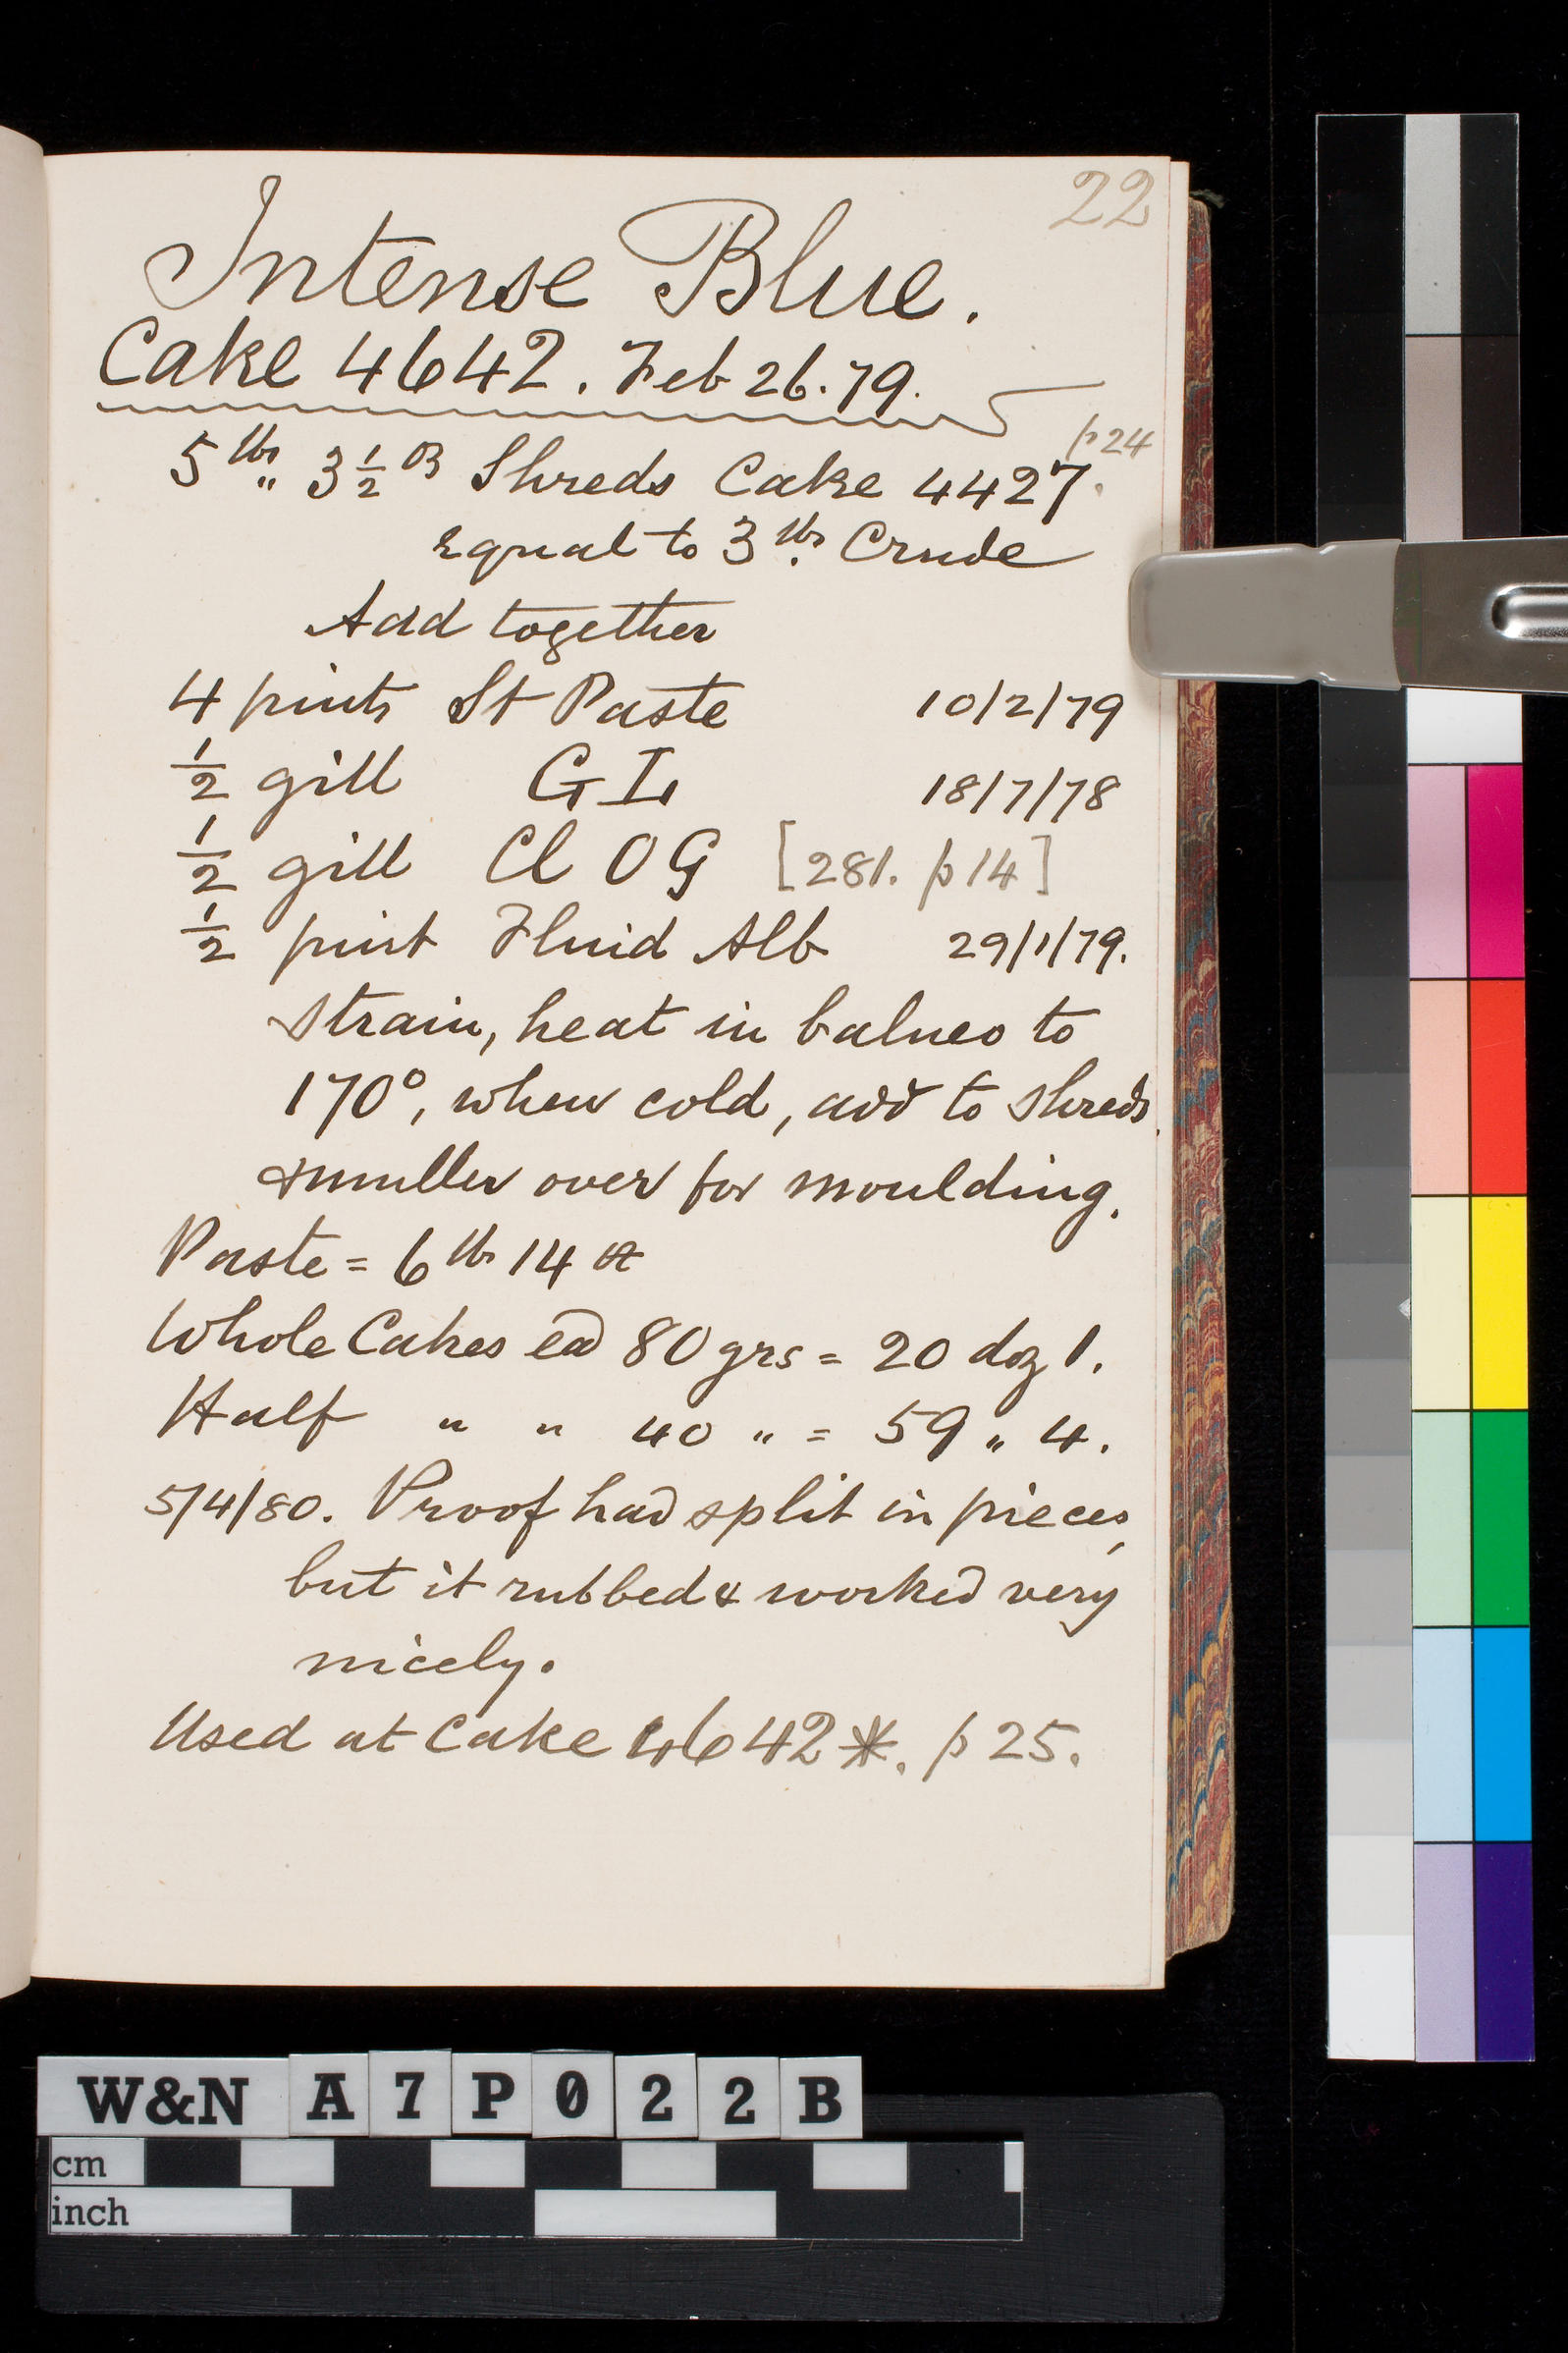 22
Intense Blue.
Cake 4642. Feb 26.79.
p24
5 lbs „ 3 1/2 oz Shreds Cake 4427.
equal to 3 lbs. Crude
Add together
4 pints St Paste 10/2/79
1/2 gill GL 18/7/78
1/2 gill Cl O G [281. p14]
1/2 pint Fluid Alb 29/1/79.
strain, heat in balneo to
170°, when cold, add to shreds.
& muller over for moulding.
Paste = 6 lbs 14 oz
Whole Cakes ea 80 grs = 20 doz 1.
Half „ „ 40 „ = 59 „ 4.
5/4/80. Proof had split in pieces,
but it rubbed & worked very
nicely.
Used at Cake 4642*. p 25.
W&N A7P022B
cm
inch